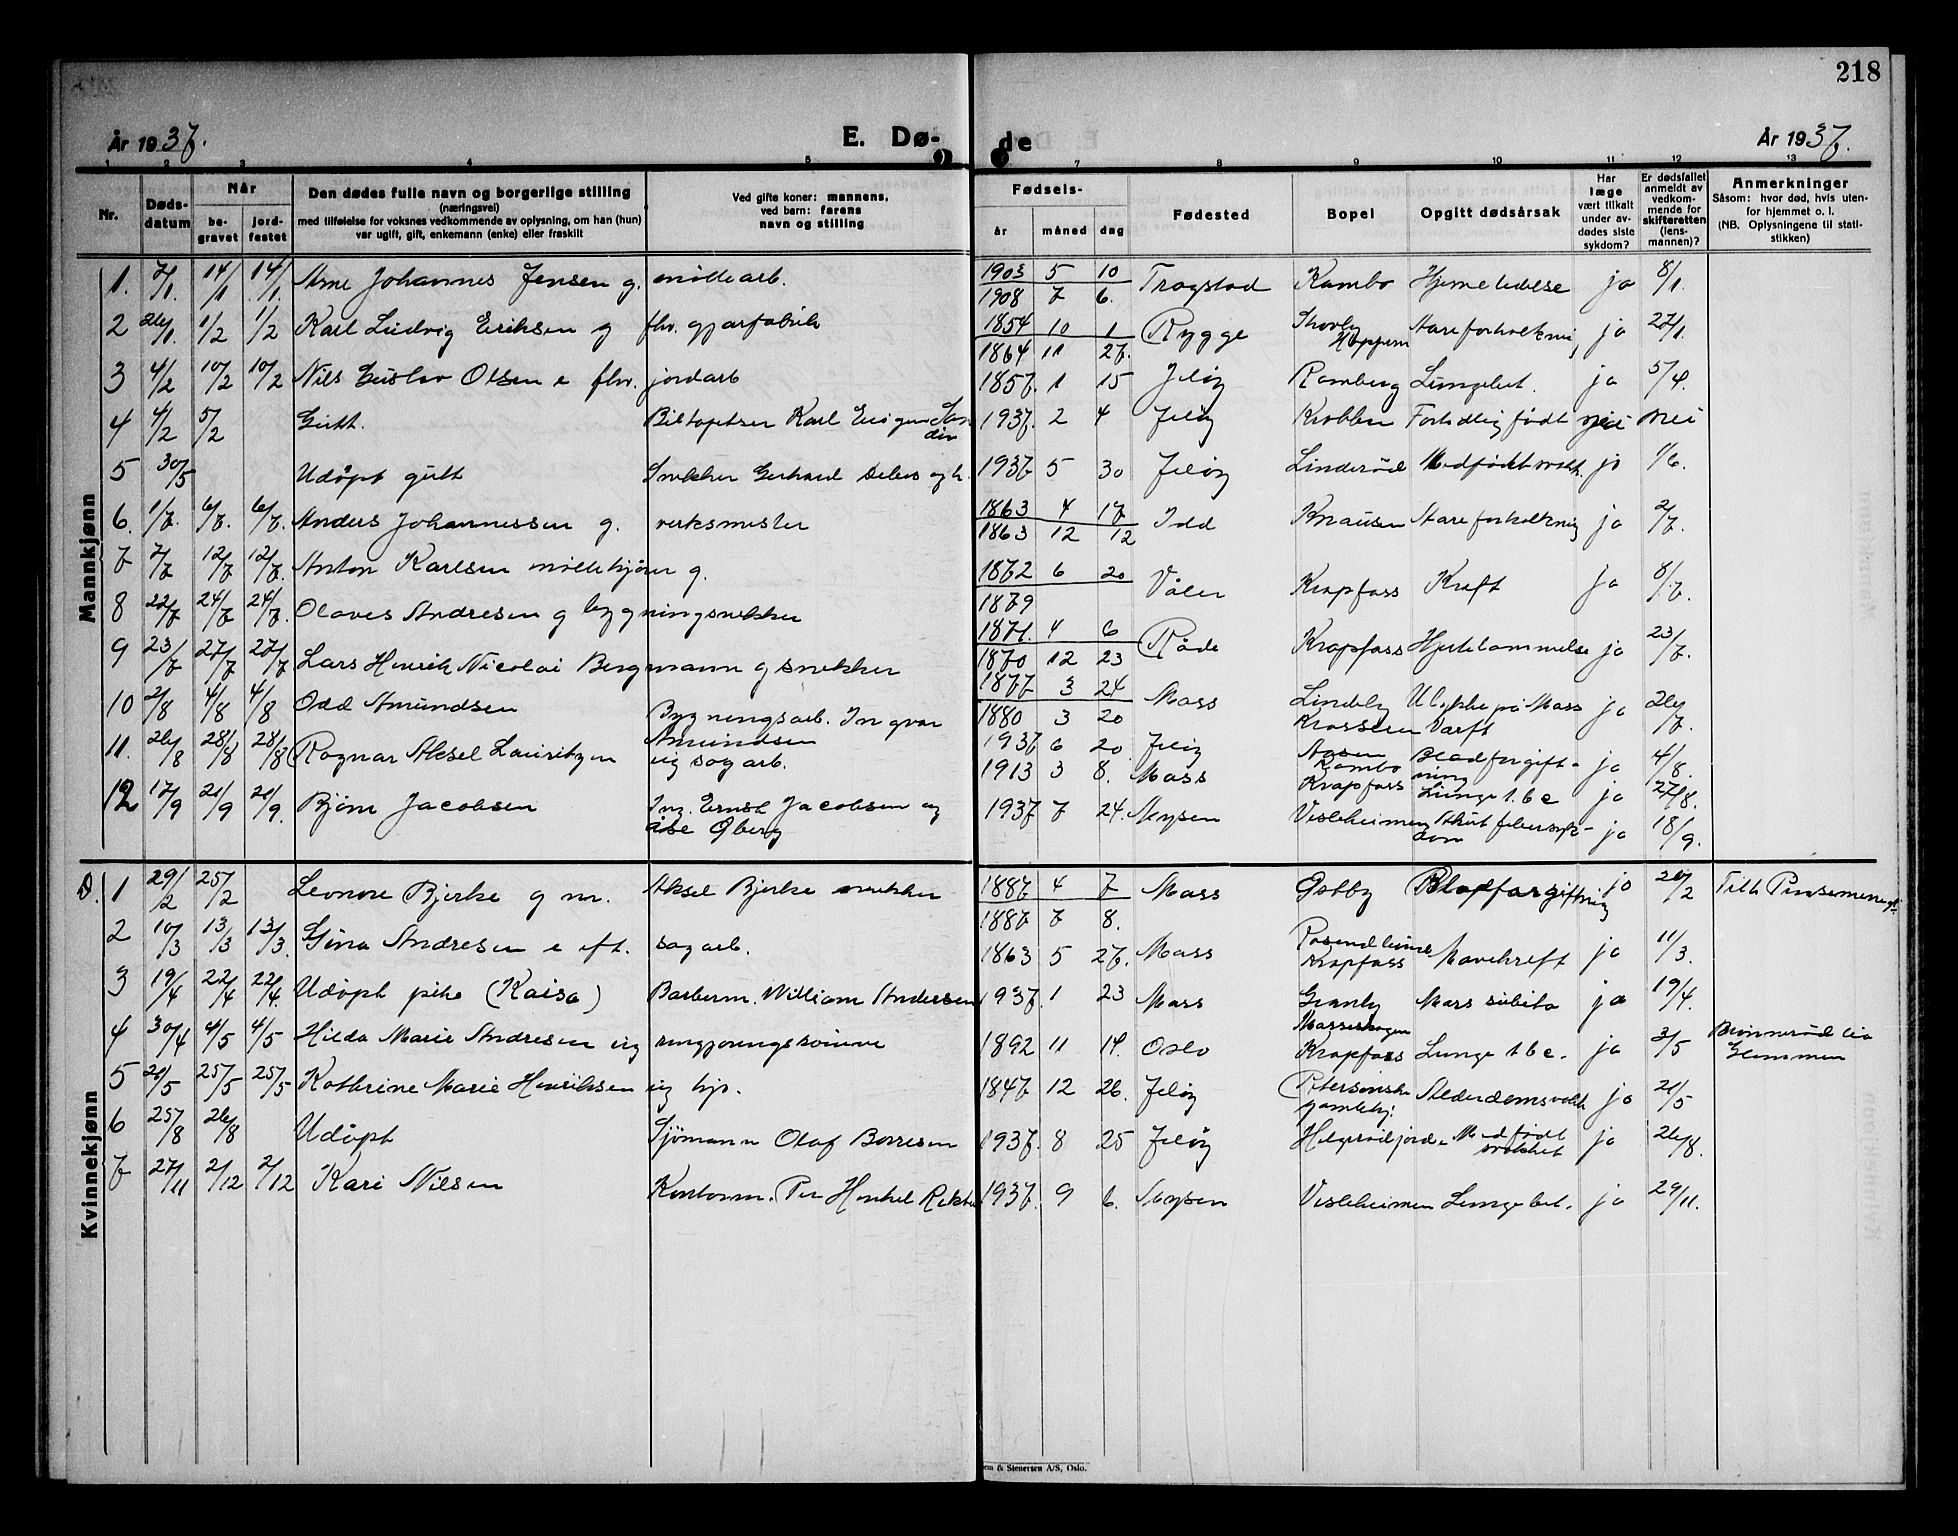 218
År 1937.
E. Dø-
de
År 1937.
1 2 3 4 5 7 8 9 10 11 12 13
Nr.
Døds-
datum
Når
be-
gravet
jord-
festet
Den dødes fulle navn og borgerlige stilling
(næringsvei)
med tilføielse for voksnes vedkommende av oplysning, om han (hun)
var ugift, gift, enkemann (enke) eller fraskilt
Ved gifte koner: mannens,
ved barn: farens
navn og stilling
Fødsels-
år måned dag
Fødested
Bopel
Opgitt dødsårsak
Har
læge
vært tilkalt
under av-
dødes siste
sykdom?
Er dødsfallet
anmeldt av
vedkom-
mende for
skifteretten
(lens-
mannen)?
Anmerkninger
Såsom: hvor død, hvis uten-
for hjemmet o. l.
(NB. Oplysningene til stati-
stikken)
Mannkjønn
1. 7/1. 14/1 14/1. Arne Johannes Jensen g. møllearb.
2 26/1. 1/2 1/2 Karl Ludvig Eriksen g fhv. gjørfabrik
3 4/2 10/2 10/2 Nils Gustav Olsen e fhv. jordarb
4 4/2 5/2 Gutt. Biltapetser Karl
5 30/5 Udøpt gutt Snekker Gerhard
6. 1/7. 6/7. 6/7. Anders Johannessen g. verksmester
7 7/7 12/7 12/7. Anton Karlsen møllekjører g.
8 22/7 24/7 24/7. Olaves Andresen g bygningsnekker
9 23/7 27/7 27/7 Lars Henrik Nicolai Bergmann g snekker
10 2/8 4/8 4/8 Odd Amundsen Bygningsarb. Ingvar
Amundsen
11. 26/8 28/8 28/8 Ragnar Aksel Lauritzen ug sagarb.
12 17/9 21/9 21/9. Bjørn Jacobsen Ing. Ernst Jacobsen og
åse Øberg
1903 5 10
1908 7 6. Trøgstad Kambo Hjerne lidelse ja 8/1.
1854 10 1
1864 11 27. Rygge Skovly
Hoppern Aareforkalkning ja 27/1.
1857. 1 15 Jeløy Ramberg Lungebet. ja 5/4.
1937. 2 4 Jeløy Krabben Fortidlig født nei nei
1937 5 30 Jeløy Linderød Medfødt svakh. ja 1/6.
1863 4 17
1863 12 12 Idd Knausen Aareforkalkning ja 2/7.
1872 6 20
1879 Våler Krapfoss Kreft ja 8/7.
1871. 4 6
1870 12 23 Råde Krapfoss Hjertelammelse ja 23/7.
1877 3 24
1880 3 20 Moss Lindeby
Krossern Ulykke på Moss
Værft ja 26/7.
1937 6 20. Jeløy Aasen
Kambo Blodforgift-
ning ja 4/8.
1913 3 8. Moss Krapfoss Lunge t.b.c ja 27/8.
1937 7 24. Mysen Vesleheimen Akut febersyk-
dom ja 18/9.
Kvinnekjønn
D. 1 29/2 25/2 Leonore Bjerke g m. Aksel Bjerke snekker
2 10/3 13/3 13/3. Gina Andresen e eft. sagarb.
3 19/4 22/4 22/4. Udøpt pike (Kaisa) Barberm. William Andersen
4 30/4 4/5 4/5 Hilda Marie Andresen ug rengjøringskvinne
5 21/5 25/5 25/5 Kathrine Marie Henriksen ug hjp.
6 25/8 26/8 Udøpt Sjømann Olaf Borresen
7 27/11 2/12 2/12 Kari Nilsen Kontorm. Per Henkel
1887. 4 7
1887. 7 8. Moss Østby Blodforgiftning ja 20/2 Tilh. Pinsemenigh.
1863 5 27. Moss Rosendlunde
Krapfoss Mavekreft ja 11/3.
1937. 1 23 Moss Granly
Mosseskogen Mors subita ja 19/4.
1892 11 14. Oslo Krapfoss Lunge tbc. ja 3/5 Brønnerød lia
Glemmen
1847 12 26. Jeløy Petersonske
gamlehj. Alderdomsvakh ja 21/5
1937. 8 25 Jeløy Helgerødfjord. Medfødt
svakhet ja 26/8.
1937. 9 6. Mysen Vesleheimen Lungebet. ja 29/11.
em & Stenersen A/S, Oslo.